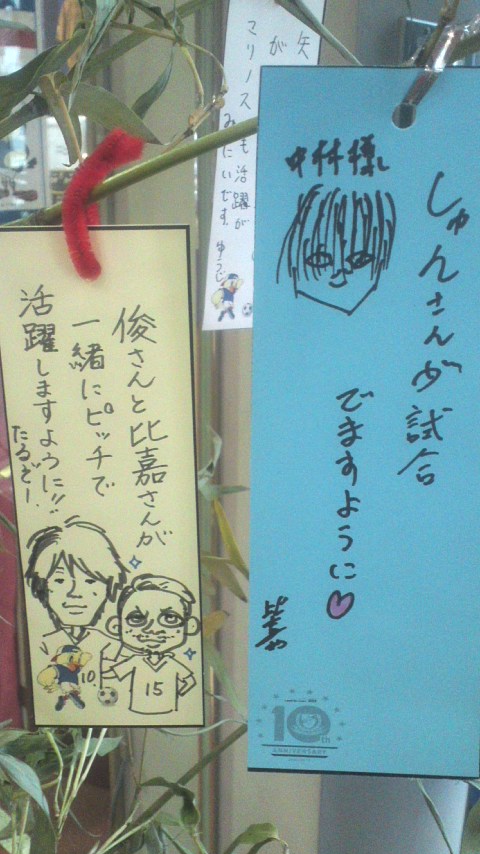 中村様
しゅんさんが試合
でますように
比嘉
10th
ANNIVERSARY
俊さんと比嘉さんが
一緒にピッチで
活躍しますように!!
たるぞー!
10.
15
矢
が
マリノス
も活躍が
みたいです。
ゆうじ